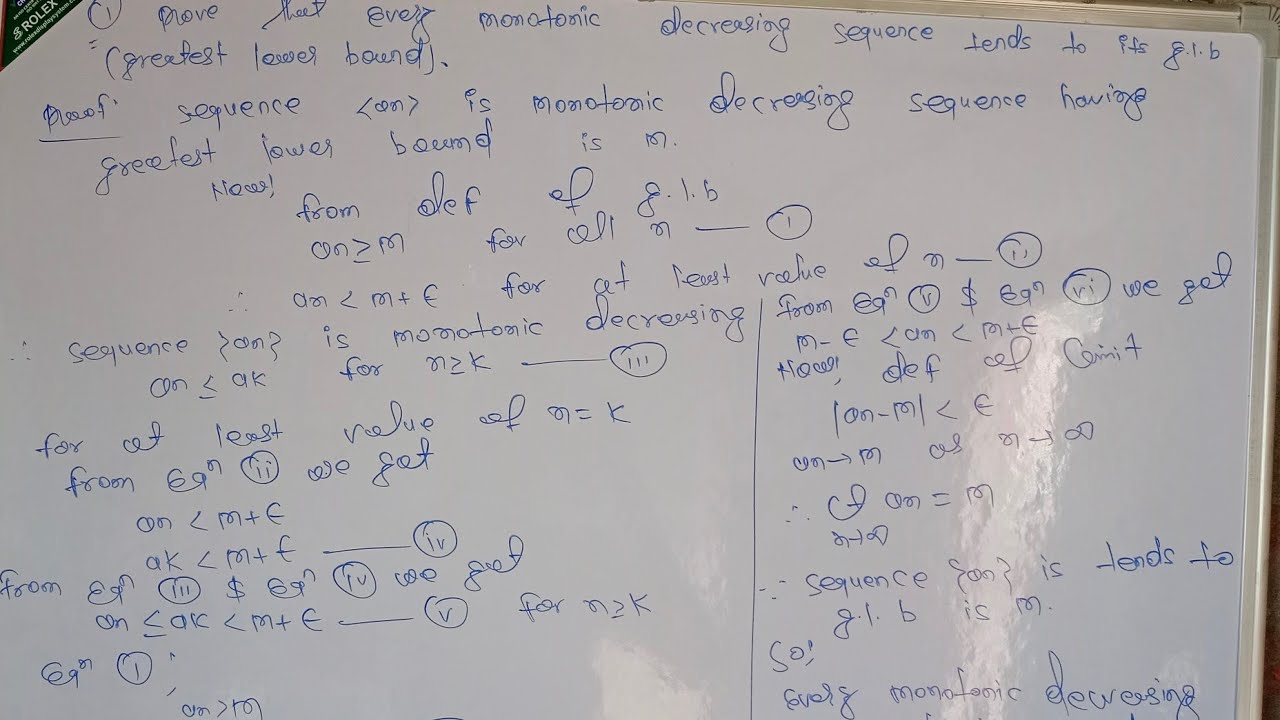 ROLEX
① prove that every monotonic decreasing sequence tends to its g.l.b
(greatest lower bound).
Proof: sequence <an> is monotonic decreasing sequence having
greatest lower bound is m.
Now!
from def of g.l.b
an ≥ m for all n — ①
∴ an < m+ϵ for at least value of n — ⅱ
∴ sequence {an} is monotonic decreasing
an ≤ ak for n≥k — ⅲ
for at least value of n=k
from eqⁿ ⅱ we get
an < m+ϵ
ak < m+ϵ — ⅳ
from eqⁿ ⅲ $ eqⁿ ⅳ we get
an ≤ ak < m+ϵ — ⅴ for n≥k
eqⁿ ①;
an ≥ m
from eqⁿ ⅴ $ eqⁿ ⅵ we get
m-ϵ < an < m+ϵ
Now! def of limit
|an-m| < ϵ
an→m as n→∞
∴ lt an = m
n→∞
∵ sequence {an} is tends to
g.l.b is m.
So!
Every monotonic decreasing